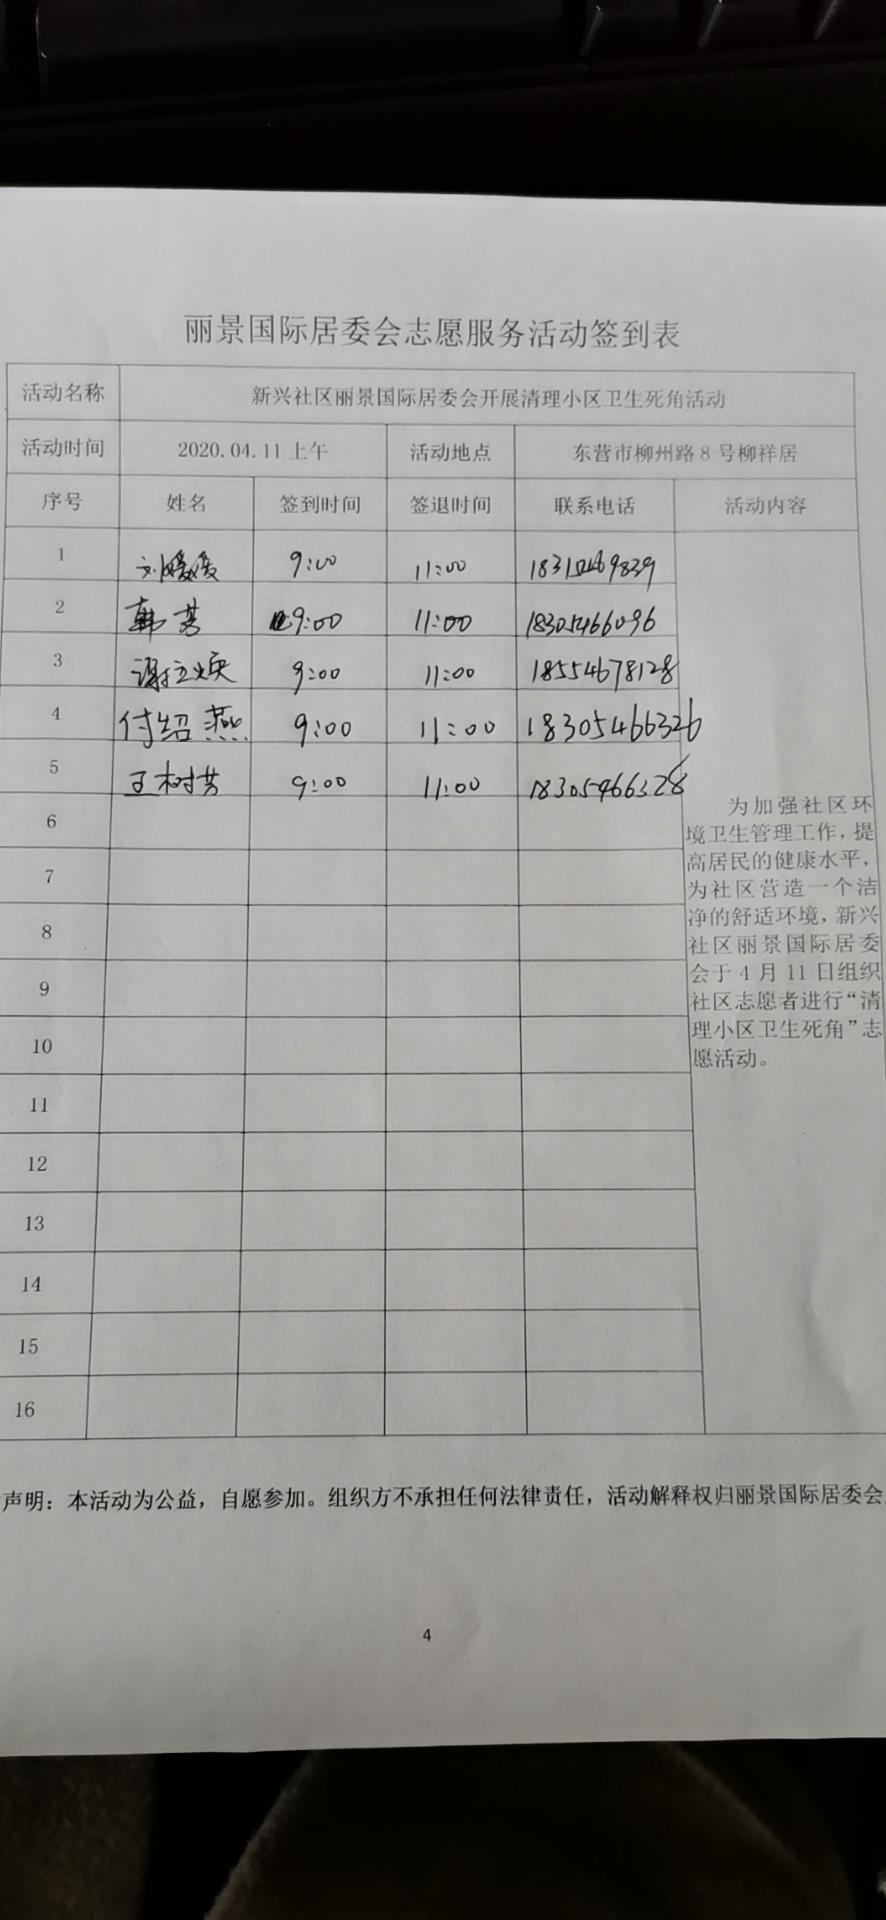 丽景国际居委会志愿服务活动签到表
活动名称 新兴社区丽景国际居委会开展清理小区卫生死角活动
活动时间 2020.04.11上午 活动地点 东营市柳州路8号柳祥居
序号 姓名 签到时间 签退时间 联系电话 活动内容
1 刘媛媛 9:00 11:00
2 韩 9:00 11:00 18305466096
3 谢 9:00 11:00 18554678128
4 付绍燕 9:00 11:00 18305466326
5 王树芳 9:00 11:00 18305466328
6
7
8
9
10
11
12
13
14
15
16
为加强社区环
境卫生管理工作，提
高居民的健康水平，
为社区营造一个洁
净的舒适环境，新兴
社区丽景国际居委
会于4月11日组织
社区志愿者进行“清
理小区卫生死角”志
愿活动。
声明：本活动为公益，自愿参加。组织方不承担任何法律责任，活动解释权归丽景国际居委会
4